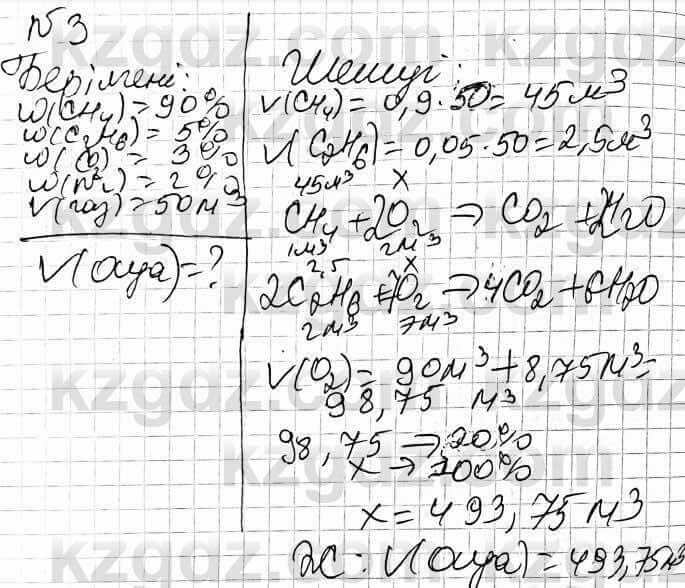 №3
Берілгені:
w(CH4)=90%
w(C2H6)=5%
w(CO2)=3%
w(N2)=2%
V(газ)=50м3
V(ауа)=?
Шешуі:
V(CH4)=0,9·50=45м3
V(C2H6)=0,05·50=2,5м3
45м3 x
CH4+2O2⇒CO2+2H2O
1м3 2м3
2,5 x
2C2H6+7O2⇒4CO2+6H2O
2м3 7м3
V(O2)=90м3+8,75м3=
98,75 м3
98,75⇒20%
x→100%
x=493,75м3
ЖС: V(ауа)=493,75м3
kzgdz.com